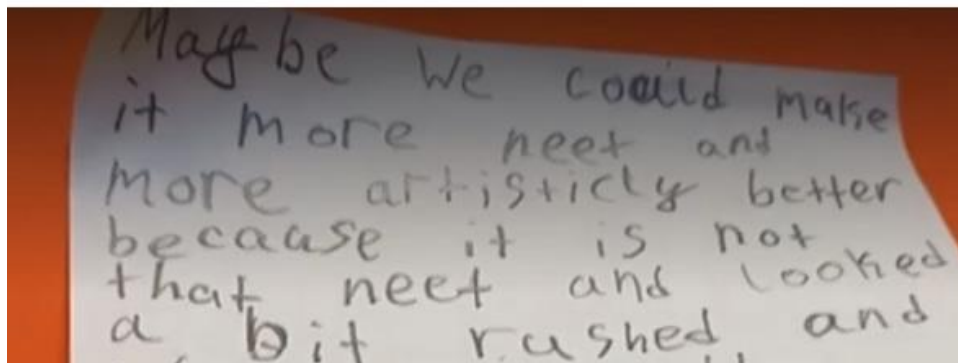 Maybe we could make
it more neet and
more artisticly better
because it is not
that neet and looked
a bit rushed and